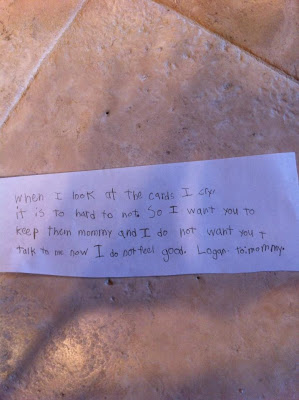 when I look at the cards I cry.
it is to hard to not. So I want you to
keep them mommy and I do not want you t
talk to me now I do not feel good. Logan to:mommy.